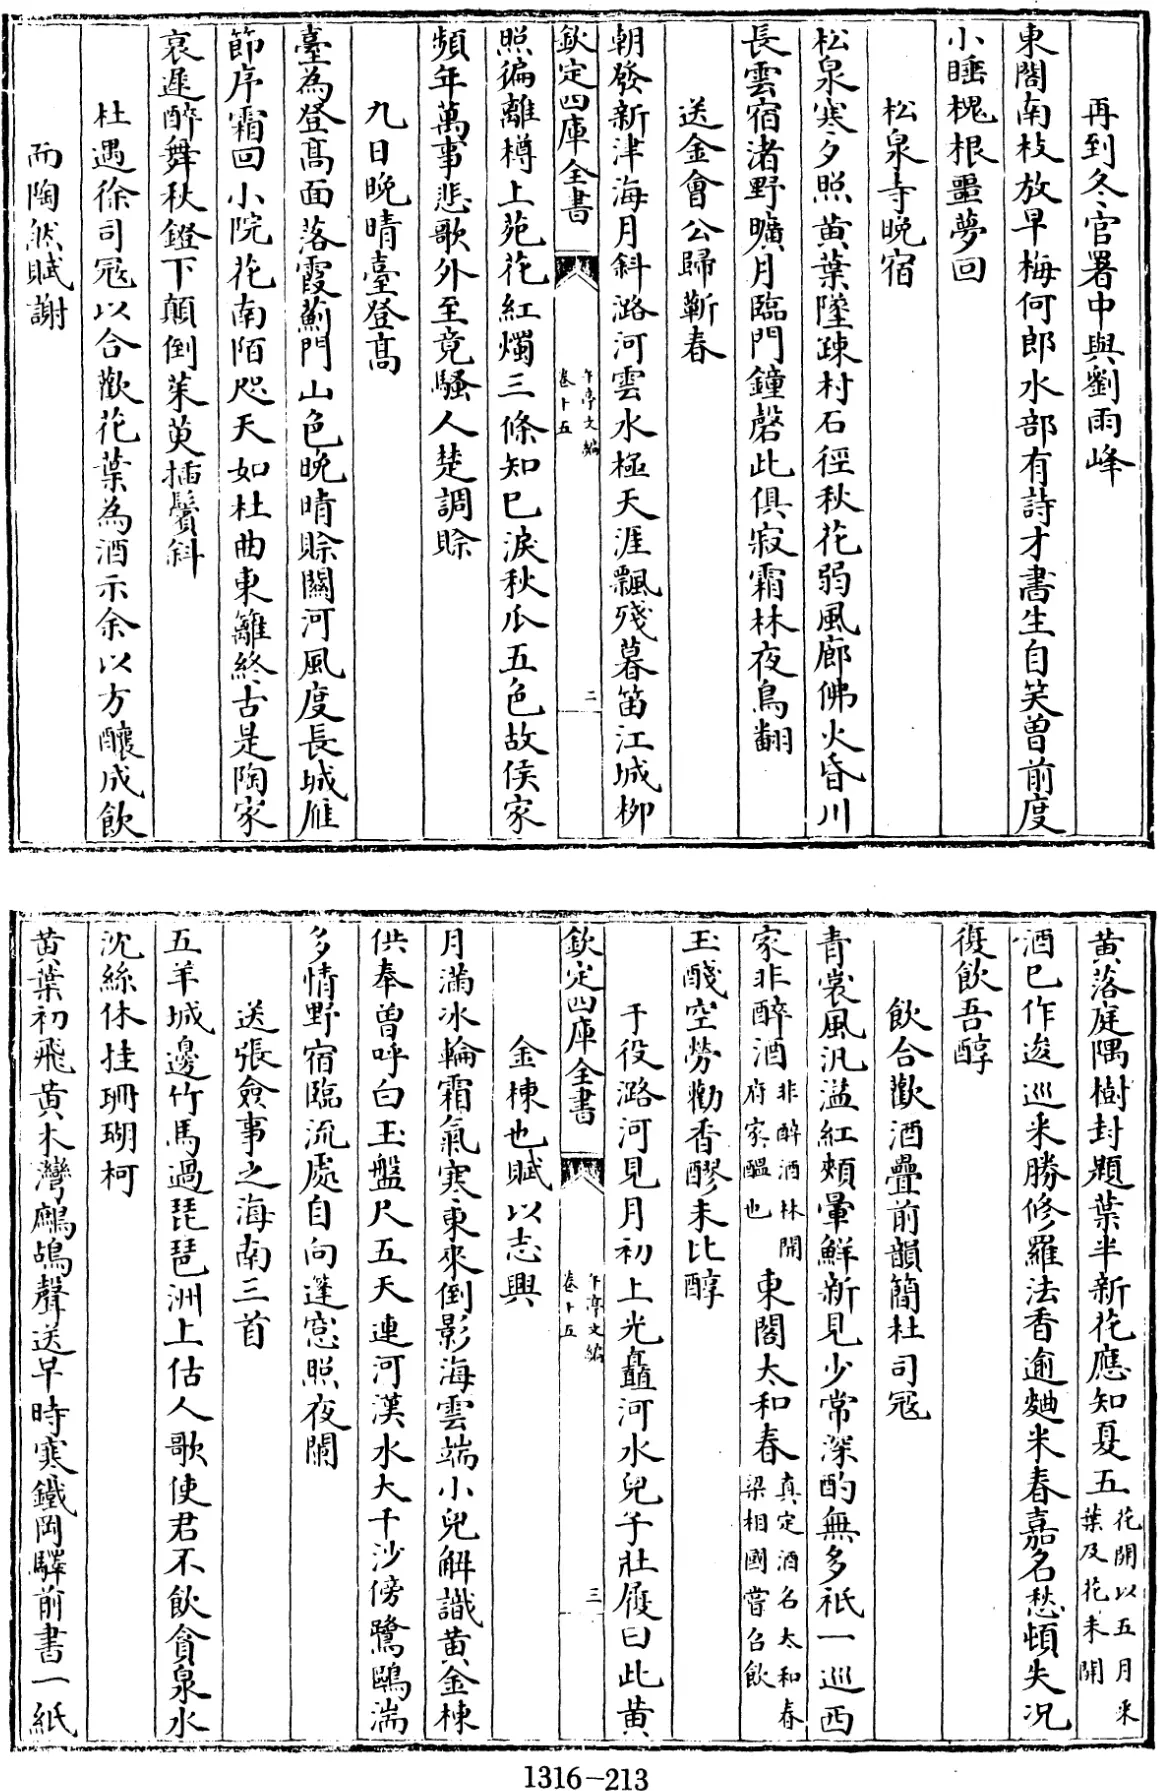 再到冬官署中與劉雨峰
東閣南枝放早梅何郎水部有詩才書生自笑曾前度
小睡槐根噩夢回
松泉寺晚宿
松泉寒夕照黄葉墜疎村石徑秋花弱風廊佛火昏川
長雲宿渚野曠月臨門鐘磬此俱寂霜林夜鳥翻
送金會公歸蘄春
朝發新津海月斜潞河雲水極天涯飄殘暮笛江城柳
欽定四庫全書
午亭文編
卷十五
二
照徧離樽上苑花紅燭三條知已淚秋瓜五色故侯家
頻年萬事悲歌外至竟騷人楚調賒
九日晚晴臺登高
臺為登高面落霞薊門山色晚晴賒關河風度長城雁
節序霜回小院花南陌咫天如杜曲東籬終古是陶家
哀遲醉舞秋鐙下顛倒茱萸插鬢斜
杜遇徐司冦以合歡花葉為酒示余以方釀成飲
而陶然賦謝
黄落庭隅樹封題葉半新花應知夏五
花開以五月采
葉及花未開
酒已作逡巡采勝修羅法香逾麹米春嘉名愁頓失况
復飲吾醇
飲合歡酒疊前韻簡杜司冦
青裳風汎濫紅頰暈鮮新見少常深酌無多祇一巡西
家非醉酒
非醉酒林開
府家醖也
東閣太和春
真定酒名太和春
梁相國嘗召飲
玉醆空勞勸香醪未比醇
于役潞河見月初上光矗河水兒子壯履曰此黄
欽定四庫全書
午亭文編
卷十五
三
金棟也賦以志興
月滿冰輪霜氣寒東來倒影海雲端小兒解識黄金棟
供奉曾呼白玉盤尺五天連河漢水大千沙傍鷺鷗湍
多情野宿臨流處自向篷窓照夜闌
送張僉事之海南三首
五羊城邊竹馬過琵琶洲上估人歌使君不飲貪泉水
沈絲休挂珊瑚柯
黄葉初飛黄木灣鷓鴣聲送早時寒鐵岡驛前書一紙
1316-213